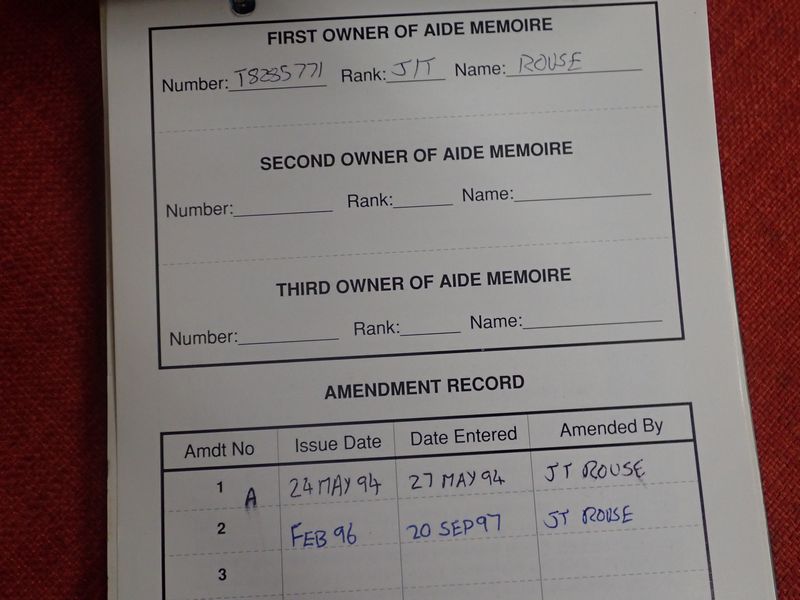 FIRST OWNER OF AIDE MEMOIRE
Number: T8235771 Rank: J/T Name: ROUSE
SECOND OWNER OF AIDE MEMOIRE
Number: Rank: Name:
THIRD OWNER OF AIDE MEMOIRE
Number: Rank: Name:
AMENDMENT RECORD
Amdt No Issue Date Date Entered Amended By
1 A 24 MAY 94 27 MAY 94 JT ROUSE
2 FEB 96 20 SEP 97 JT ROUSE
3